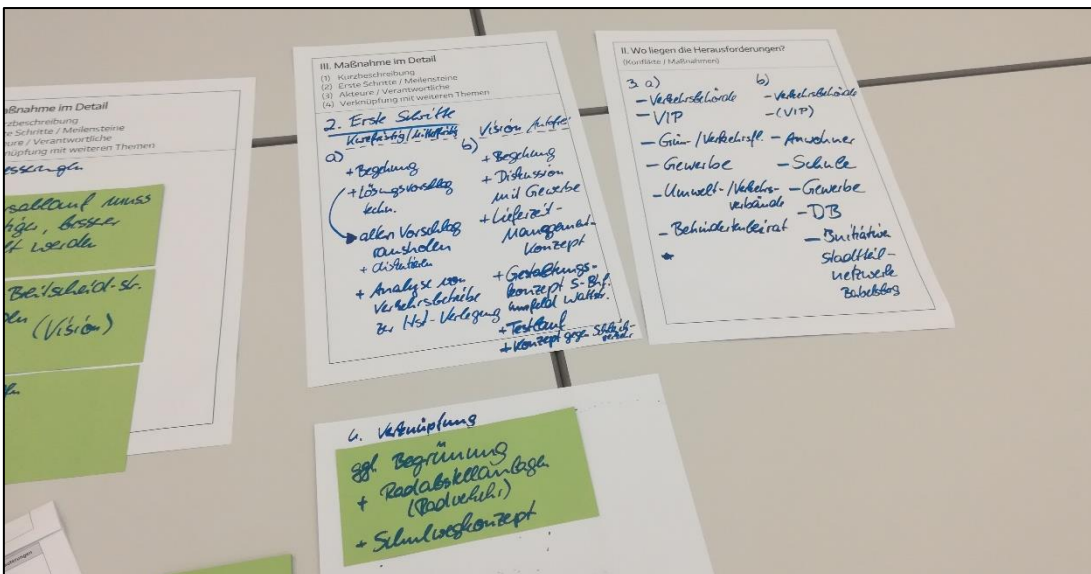 Maßnahme im Detail
Kurzbeschreibung
Erste Schritte / Meilensteine
Akteure / Verantwortliche
Verknüpfung mit weiteren Themen
muss
besser
werden
Breitscheid-Str.
(Vision)
III. Maßnahme im Detail
(1) Kurzbeschreibung
(2) Erste Schritte / Meilensteine
(3) Akteure / Verantwortliche
(4) Verknüpfung mit weiteren Themen
2. Erste Schritte
Kurzfristig / Mittelfristig
a)
+ Begehung
+ Lösungsvorschlag
techn.
alten Vorschlag
rausholen
+ diskutieren
+ Analyse von
Verkehrsbetriebe
zur Hst-Verlegung
Vision / Autofrei
b)
+ Begehung
+ Diskussion
mit Gewerbe
+ Lieferzeit-
Management-
Konzept
+ Gestaltungs-
konzept S-Bhf.
umfeld Wattstr.
+ Testlauf
+ Konzept gegen Schleich-
verkehr
II. Wo liegen die Herausforderungen?
(Konflikte / Maßnahmen)
3. a)
- Verkehrsbehörde
- VIP
- Grün-/Verkehrsfl.
- Gewerbe
- Umwelt-/Verkehrs-
verbände
- Behindertenbeirat
b)
- Verkehrsbehörde
- (VIP)
- Anwohner
- Schule
- Gewerbe
- DB
- Initiative
Stadtteil-
netzwerk
Babelsberg
4. Verknüpfung
ggf. Begrünung
+ Radabstellanlagen
(Radverkehr)
+ Schulwegkonzept